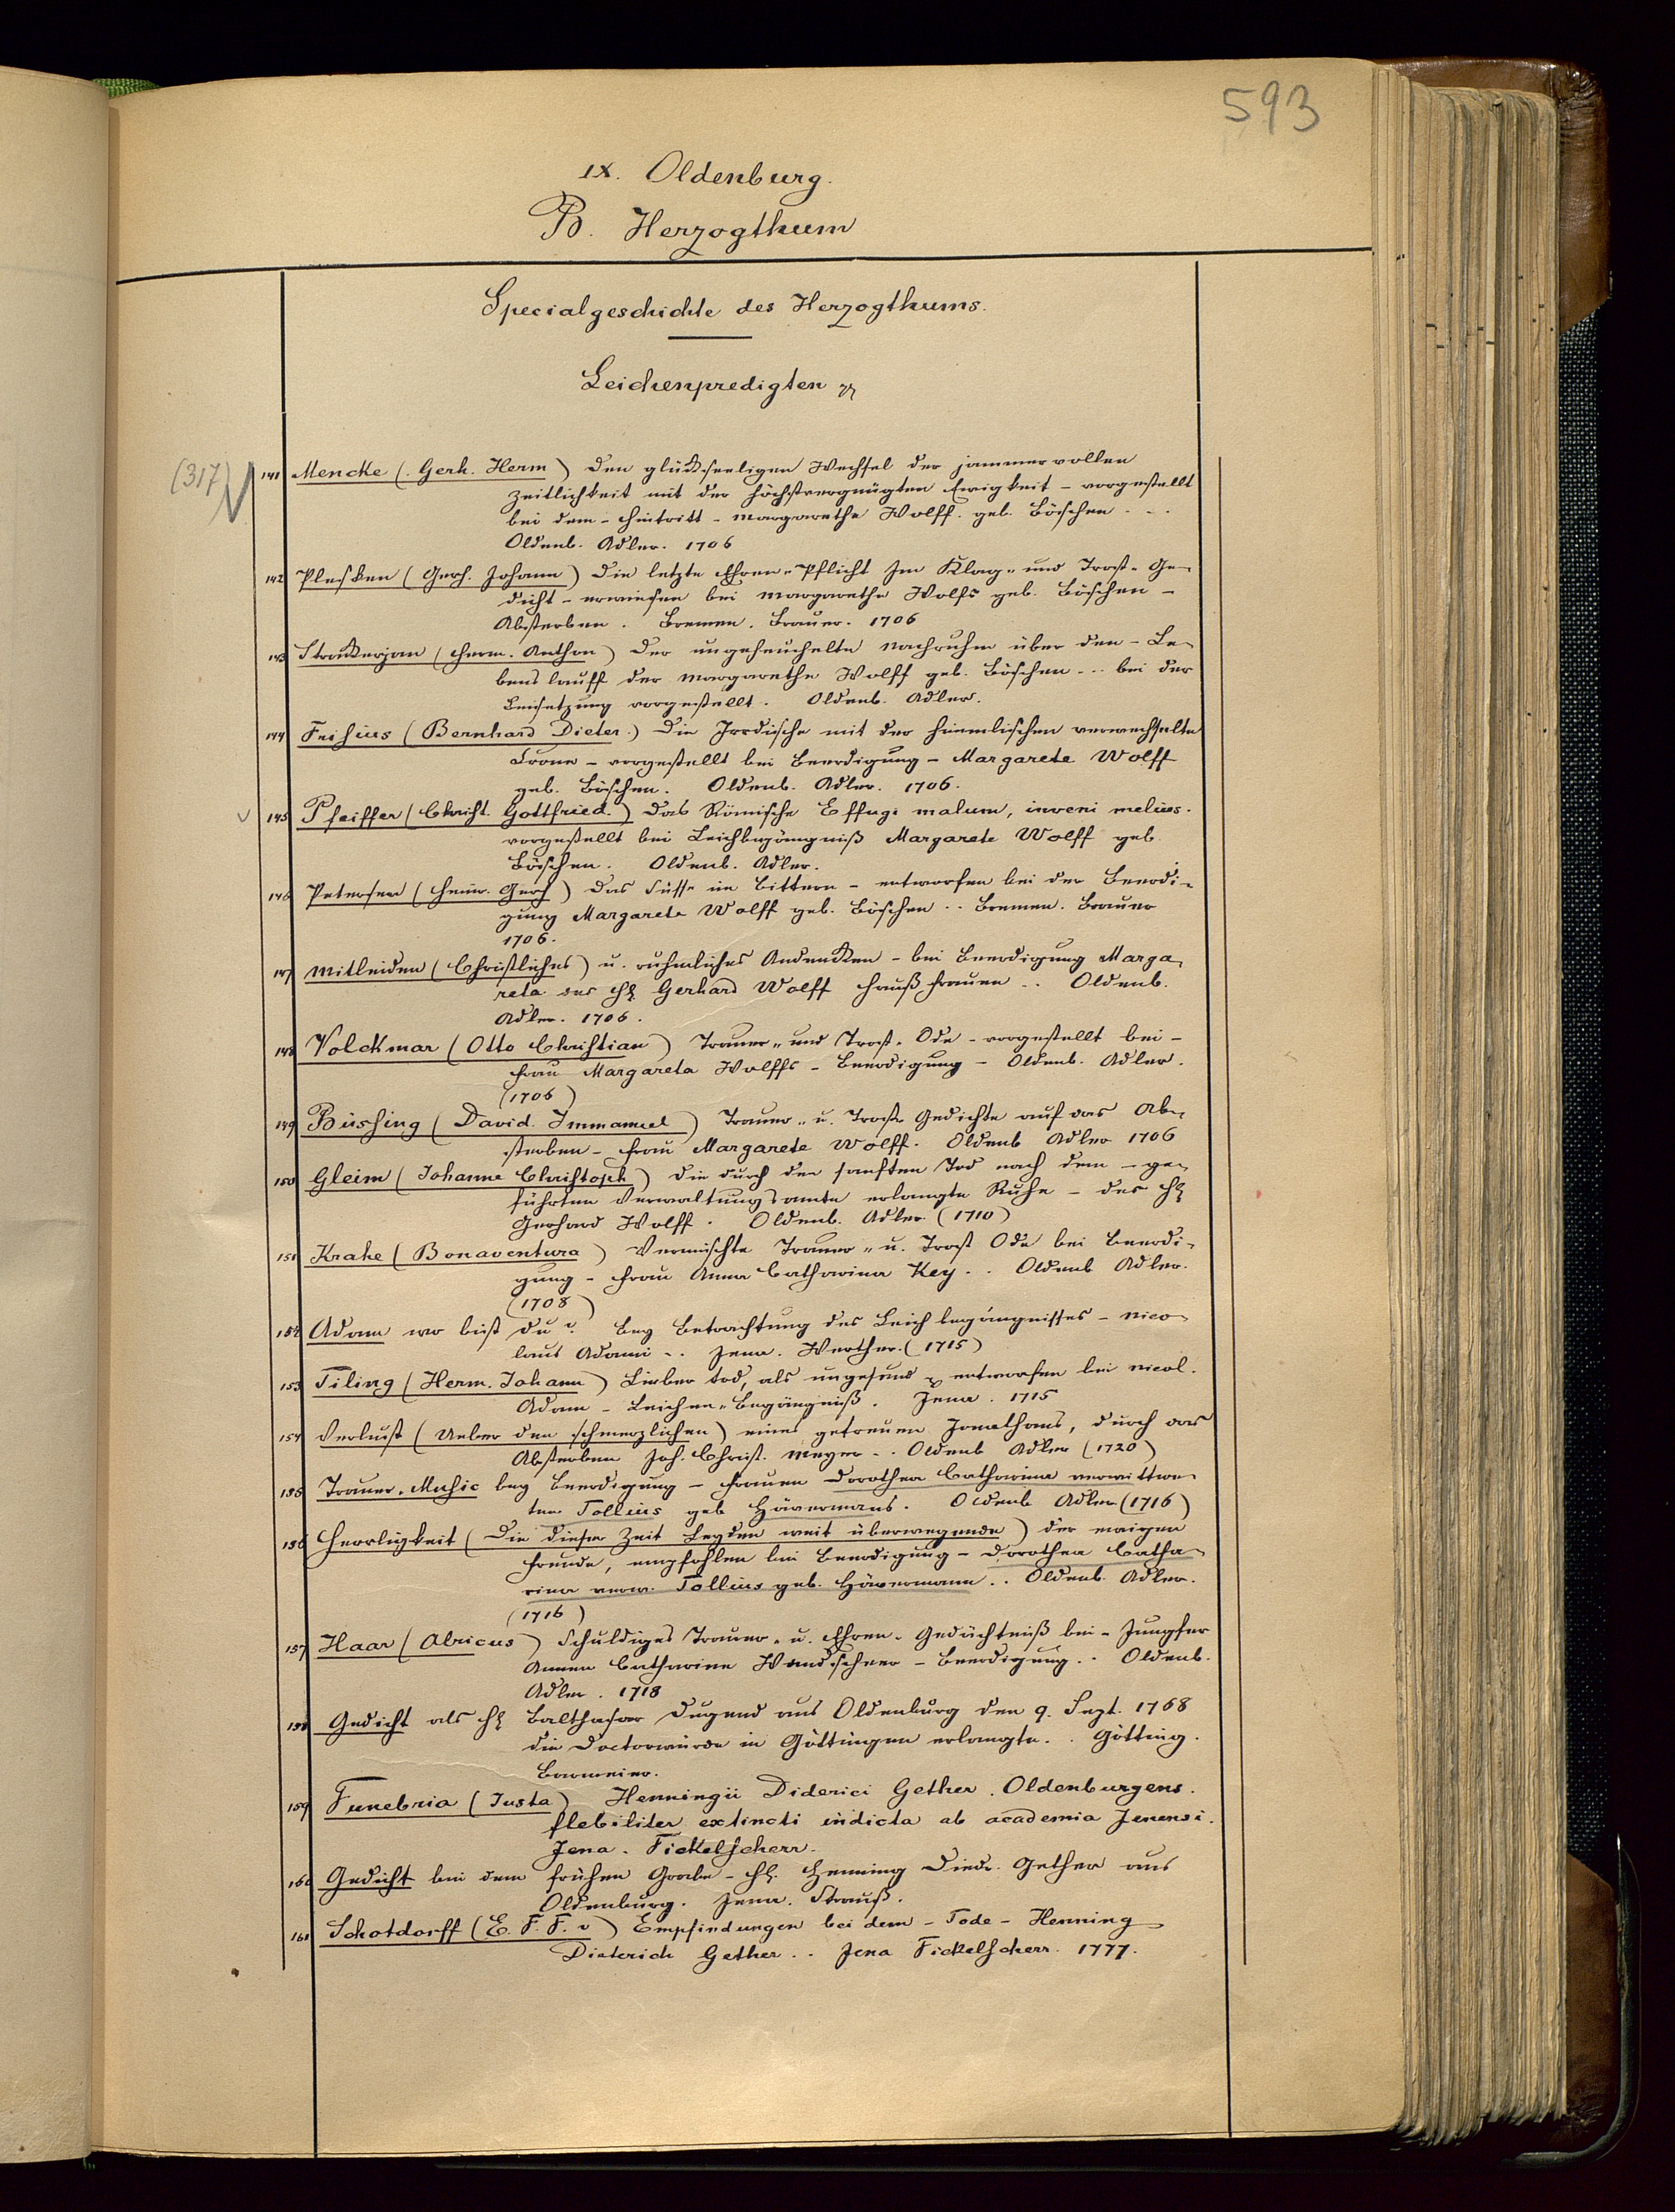 593
IX. Oldenburg.
B. Herzogthum
Specialgeschichte des Herzogthums.
Leichenpredigten
(317)
141 Mencke (Gerh. Herm) Den glükseeligen Wechsel der jammervollen
Zeitlichkeit mit der höchstvergnügten Ewigkeit - vorgestellt
bei dem - Hintritt - Margarethe Wolff. geb. Böschen ...
Oldenb. Adler. 1706
142 Plesken (Gerh. Johann) Die letzte Ehren-Pflicht Im Klag- und Trost-Ge-
dicht - erwiesen bei Margarethe Wolfs geb. Böschen -
Absterben. Bremen. Brauer. 1706
143 Strakerjan (Herm. Anthon) Der ungeheuchelte Nachruhm über den - Le-
benslauff der Margarethe Wolff geb. Böschen ... bei der
Beisetzung vorgestellt. Oldenb. Adler.
144 Frisius (Bernhard Dieter.) Die Irrdische mit der himmlischen verwechselte
Crone - vorgestellt bei Beerdigung - Margarete Wolff
geb. Böschen. Oldenb. Adler. 1706.
145 Pfeiffer (Christ. Gottfried.) Das Römische Effugi malum, inveni melius.
vorgestellt bei Leichbegängniß Margarete Wolff geb.
Böschen. Oldenb. Adler.
146 Petersen (Heinr. Gerh) Das Süsse im Bittern - entworfen bei der Beerdi-
gung Margarete Wolff geb. Böschen .. Bremen. Brauer
1706.
147 Mitleiden (Christliches) u. ruhmliches Andenken - bei Beerdigung Marga-
reta des H Gerhard Wolff Haußfrauen .. Oldenb.
Adler. 1706.
148 Volckmar (Otto Christian) Trauer- und Trost-Ode - vorgestellt bei -
Frau Margareta Wolffs - Beerdigung - Oldenb. Adler.
(1706)
149 Büssing (David. Immanuel) Trauer- u. Trost Gedichte auf das Ab-
sterben - Frau Margarete Wolff. Oldenb Adler 1706
150 Gleim (Johann Christoph) Die durch den sanften Tod nach dem - ge-
führten Verwaltungsamte erlangte Ruhe - des H
Gerhard Wolff. Oldenb. Adler (1710)
151 Krahe (Bonaventura) Vermischte Trauer- u. Trost Ode bei Beerdi-
gung - Frau Anna Catharina Key .. Oldenb Adler.
(1708)
152 Adam wo bist du? bey Betrachtung des Leichbegängnisses - Nico-
laus Adami .. Jena. Werther. (1715)
153 Tiling (Herm. Johann) Lieber tod, als ungesund entworfen bei Nicol.
Adam - Leichen-Begängniß. Jena. 1715
154 Verlust (Ueber den schmerzlichen) eines getreuen Jonathans, durch das
Absterben Joh. Christ. Meyer .. Oldenb Adler (1720)
155 Trauer-Music bey Beerdigung - Frauen Dorothea Catharina verwittwe-
ten Tollius geb Hävermans. Oldenb Adler (1716)
156 Herrligkeit (Die dieser Zeit Leyden weit überwegende) der ewigen
Freude, empfohlen bei Beerdigung - Dorothea Catha-
rina verw. Tollius geb. Hävermann .. Oldenb. Adler.
(1716)
157 Haar (Alricus) Schuldiges Trauer- u. Ehren-Gedächtniß bei - Jungfer
Annen Catharine Wandscheer - Beerdigung .. Oldenb.
Adler. 1718
158 Gedicht als H Balthasar Dugend aus Oldenburg den 9. Sept. 1768
die Doctorwürde in Göttingen erlangte. . Götting.
Barmeier.
159 Funebria (Justa) Henningii Diderici Gether. Oldenburgens.
flebiliter extincti indicta ab academia Jenensi.
Jena. Fickelscherr.
160 Gedicht bei dem frühen Grabe - H. Henning Diedr. Gether aus
Oldenburg. Jena. Strauß.
161 Schotdorff (E. F. F. v) Empfindungen bei dem - Tode - Henning
Dieterich Gether .. Jena Fickelscherr. 1777.